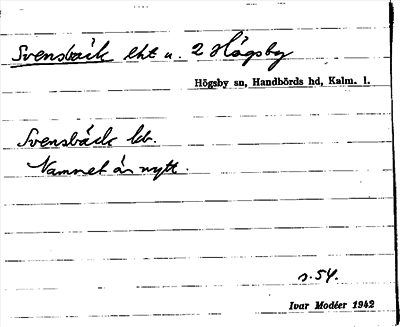 Svensbäck lht u. 2 Högsby
Högsby sn, Handbörds hd, Kalm. l.
Svensbäck ld.
Namnet är nytt.
s. 54.
Ivar Modéer 1942